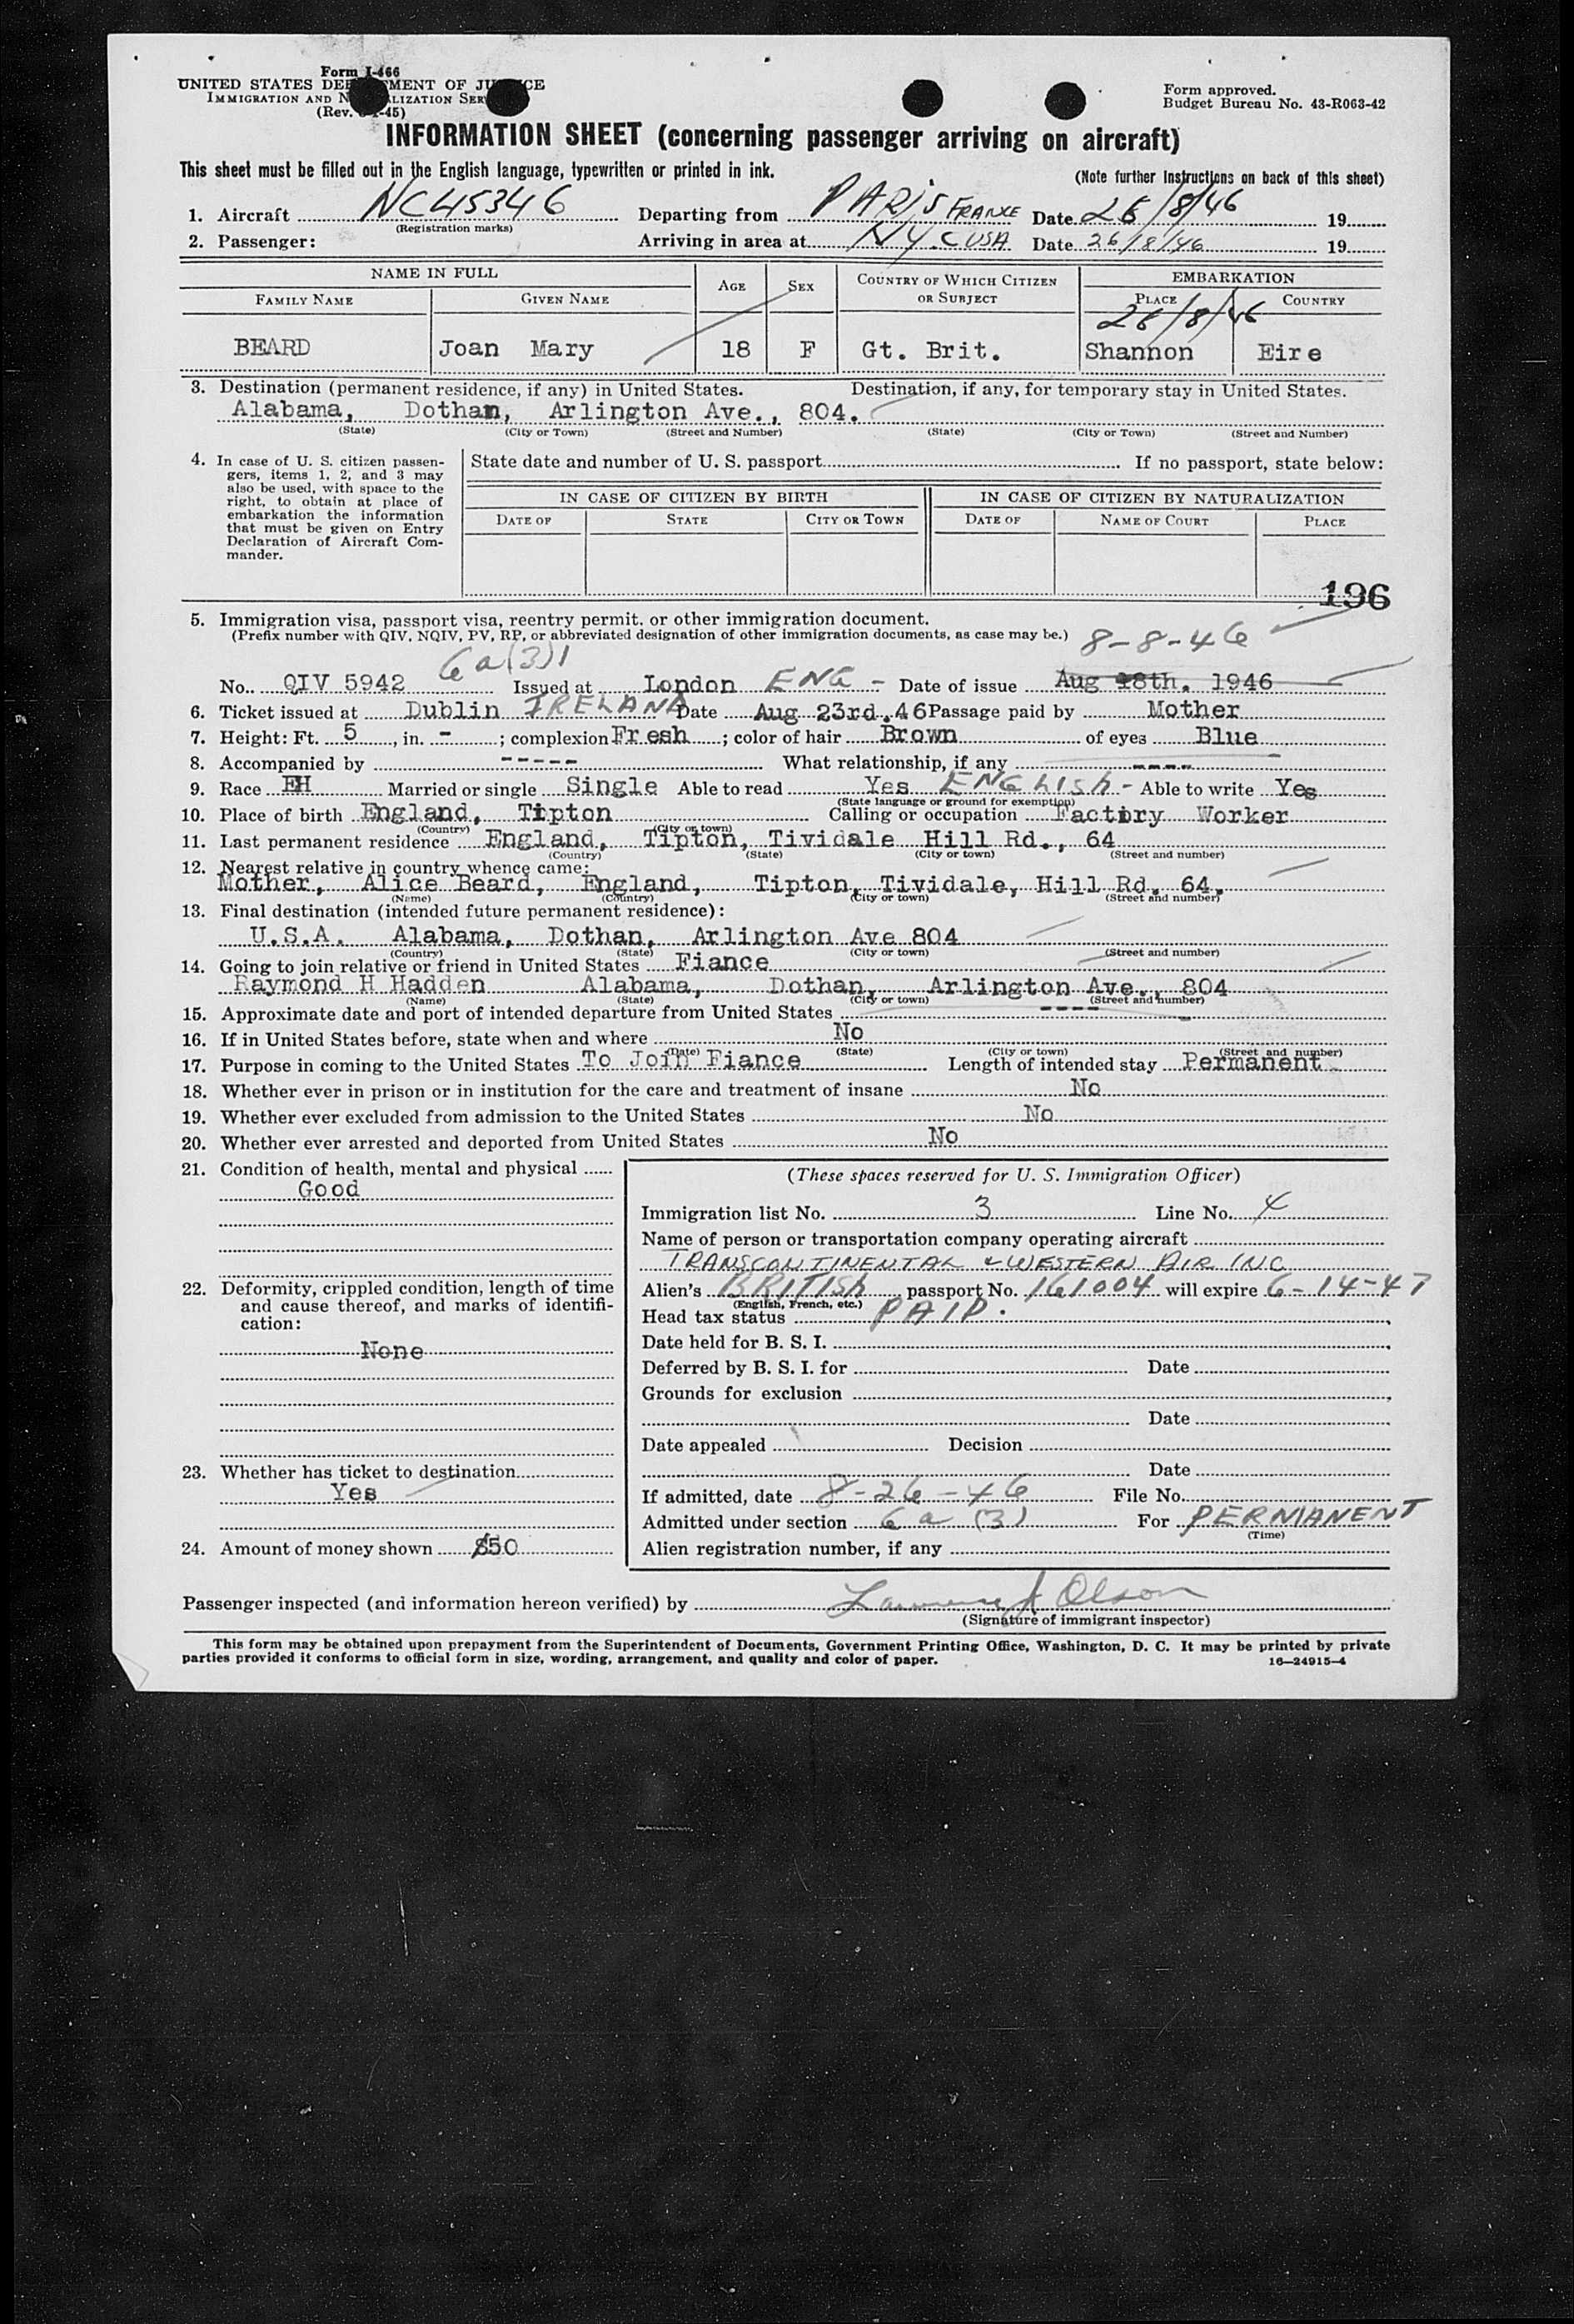 Form I-466
UNITED STATES DEPARTMENT OF JUSTICE
IMMIGRATION AND NATURALIZATION SERVICE
(Rev. -45)
Form approved.
Budget Bureau No. 43-R063-42
INFORMATION SHEET (concerning passenger arriving on aircraft)
This sheet must be filled out in the English language, typewritten or printed in ink.
(Note further instructions on back of this sheet)
1. Aircraft NC45346 Departing from PARIS FRANCE Date 26/8/46 19
(Registration marks)
2. Passenger: Arriving in area at N.Y.C USA Date 26/8/46 19
NAME IN FULL
FAMILY NAME GIVEN NAME AGE SEX COUNTRY OF WHICH CITIZEN OR SUBJECT EMBARKATION
PLACE COUNTRY
26/8/46
BEARD Joan Mary 18 F Gt. Brit. Shannon Eire
3. Destination (permanent residence, if any) in United States. Destination, if any, for temporary stay in United States.
Alabama, Dothan, Arlington Ave., 804.
(State) (City or Town) (Street and Number) (State) (City or Town) (Street and Number)
4. In case of U. S. citizen passen-
gers, items 1, 2, and 3 may
also be used, with space to the
right, to obtain at place of
embarkation the information
that must be given on Entry
Declaration of Aircraft Com-
mander.
State date and number of U. S. passport If no passport, state below:
IN CASE OF CITIZEN BY BIRTH IN CASE OF CITIZEN BY NATURALIZATION
DATE OF STATE CITY OR TOWN DATE OF NAME OF COURT PLACE
196
5. Immigration visa, passport visa, reentry permit, or other immigration document.
(Prefix number with QIV, NQIV, PV, RP, or abbreviated designation of other immigration documents, as case may be.) 8-8-46
6a(3)1
No. QIV 5942 Issued at London ENG - Date of issue Aug 18th. 1946
6. Ticket issued at Dublin IRELAND Date Aug 23rd.46 Passage paid by Mother
7. Height: Ft. 5, in. -; complexion Fresh; color of hair Brown of eyes Blue
8. Accompanied by ----- What relationship, if any ----
9. Race EH Married or single Single Able to read Yes ENGLISH - Able to write Yes
(State language or ground for exemption)
10. Place of birth England, Tipton Calling or occupation Factory Worker
(Country) (City or town)
11. Last permanent residence England, Tipton, Tividale Hill Rd., 64
(Country) (State) (City or town) (Street and number)
12. Nearest relative in country whence came:
Mother, Alice Beard, England, Tipton, Tividale, Hill Rd. 64.
(Name) (Country) (City or town) (Street and number)
13. Final destination (intended future permanent residence):
U.S.A. Alabama, Dothan, Arlington Ave 804
(Country) (State) (City or town) (Street and number)
14. Going to join relative or friend in United States Fiance
Raymond H Hadden Alabama, Dothan, Arlington Ave., 804
(Name) (State) (City or town) (Street and number)
15. Approximate date and port of intended departure from United States ----
16. If in United States before, state when and where No
(Date) (State) (City or town) (Street and number)
17. Purpose in coming to the United States To Join Fiance Length of intended stay Permanent
18. Whether ever in prison or in institution for the care and treatment of insane No
19. Whether ever excluded from admission to the United States No
20. Whether ever arrested and deported from United States No
21. Condition of health, mental and physical
Good
22. Deformity, crippled condition, length of time
and cause thereof, and marks of identifi-
cation:
None
23. Whether has ticket to destination
Yes
24. Amount of money shown $50
(These spaces reserved for U. S. Immigration Officer)
Immigration list No. 3 Line No. 4
Name of person or transportation company operating aircraft
TRANSCONTINENTAL & WESTERN AIR INC
Alien's BRITISH passport No. 161004 will expire 6-14-47
(English, French, etc.)
Head tax status PAID.
Date held for B. S. I.
Deferred by B. S. I. for Date
Grounds for exclusion
Date
Date appealed Decision
Date
If admitted, date 8-26-46 File No.
Admitted under section 6a (3) For PERMANENT
(Time)
Alien registration number, if any
Passenger inspected (and information hereon verified) by Lawrence A Olson
(Signature of immigrant inspector)
This form may be obtained upon prepayment from the Superintendent of Documents, Government Printing Office, Washington, D. C. It may be printed by private
parties provided it conforms to official form in size, wording, arrangement, and quality and color of paper. 16—24915-4